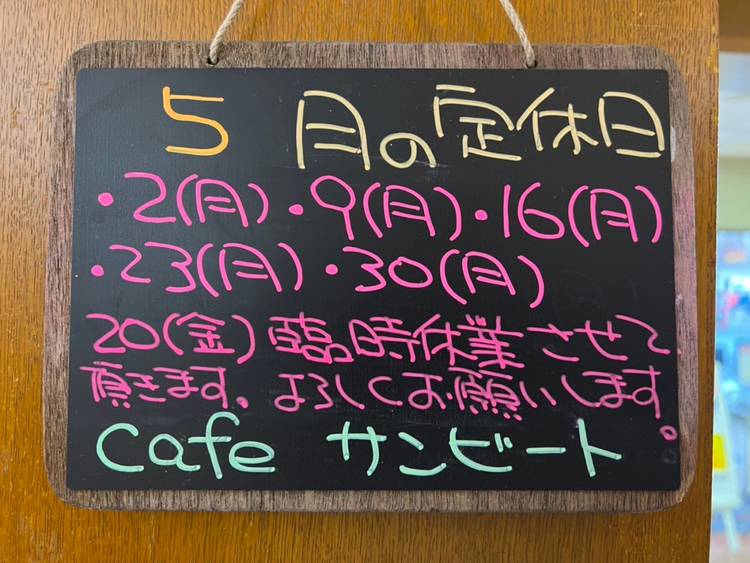 5月の定休日
・2(月)・9(月)・16(月)
・23(月)・30(月)
20(金)臨時休業させて
頂きます。よろしくお願いします。
cafe サンビート